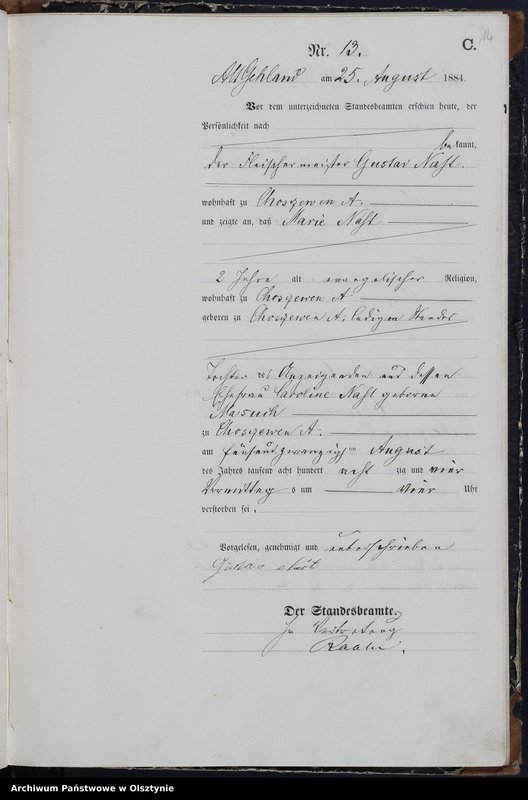 14
C.
Nr. 13.
Alt Gehland am 25. August 1884.
Vor dem unterzeichneten Standesbeamten erschien heute, der
Persönlichkeit nach
bekannt,
der Fleischermeister Gustav Naht.
wohnhaft zu Choszewen A.
und zeigte an, daß Marie Naht
2 Jahre alt evangelischer Religion,
wohnhaft zu Choszewen A
geboren zu Choszewen A, ledigen Standes
Tochter des Anzeigenden und dessen
Ehefrau Caroline Naht geborene
Masuch
zu Choszewen A.
am fünfundzwanzigsten August
des Jahres tausend acht hundert acht zig und vier
Vormittags um vier Uhr
verstorben sei.
Vorgelesen, genehmigt und unterschrieben
Gustav Naht
Der Standesbeamte.
In Vertretung
Archiwum Państwowe w Olsztynie